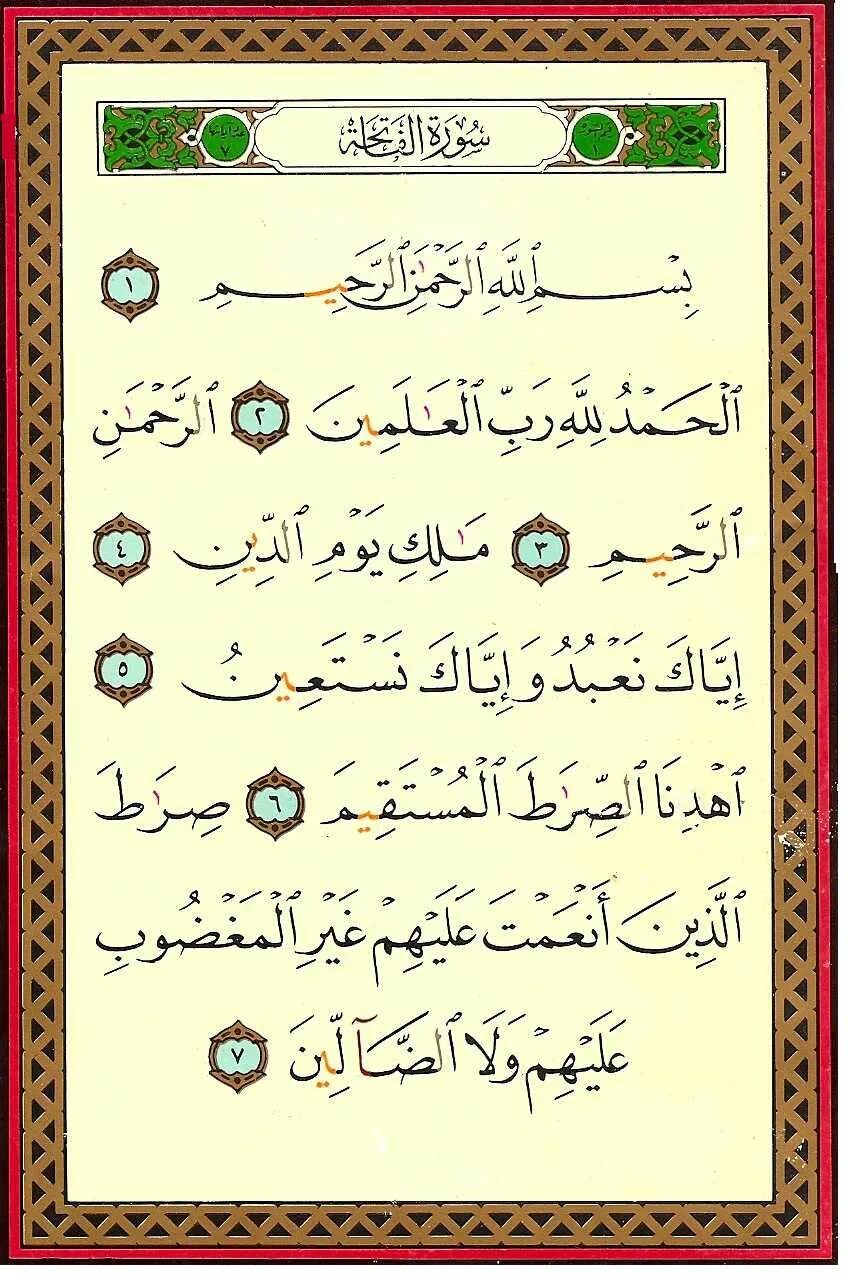 ترتيبها ١
سُورَةُ الفَاتِحَةِ
آياتها ٧
بِسْمِ ٱللَّهِ ٱلرَّحْمَٰنِ ٱلرَّحِيمِ ١
ٱلْحَمْدُ لِلَّهِ رَبِّ ٱلْعَٰلَمِينَ ٢ ٱلرَّحْمَٰنِ
ٱلرَّحِيمِ ٣ مَٰلِكِ يَوْمِ ٱلدِّينِ ٤
إِيَّاكَ نَعْبُدُ وَإِيَّاكَ نَسْتَعِينُ ٥
ٱهْدِنَا ٱلصِّرَٰطَ ٱلْمُسْتَقِيمَ ٦ صِرَٰطَ
ٱلَّذِينَ أَنْعَمْتَ عَلَيْهِمْ غَيْرِ ٱلْمَغْضُوبِ
عَلَيْهِمْ وَلَا ٱلضَّآلِّينَ ٧